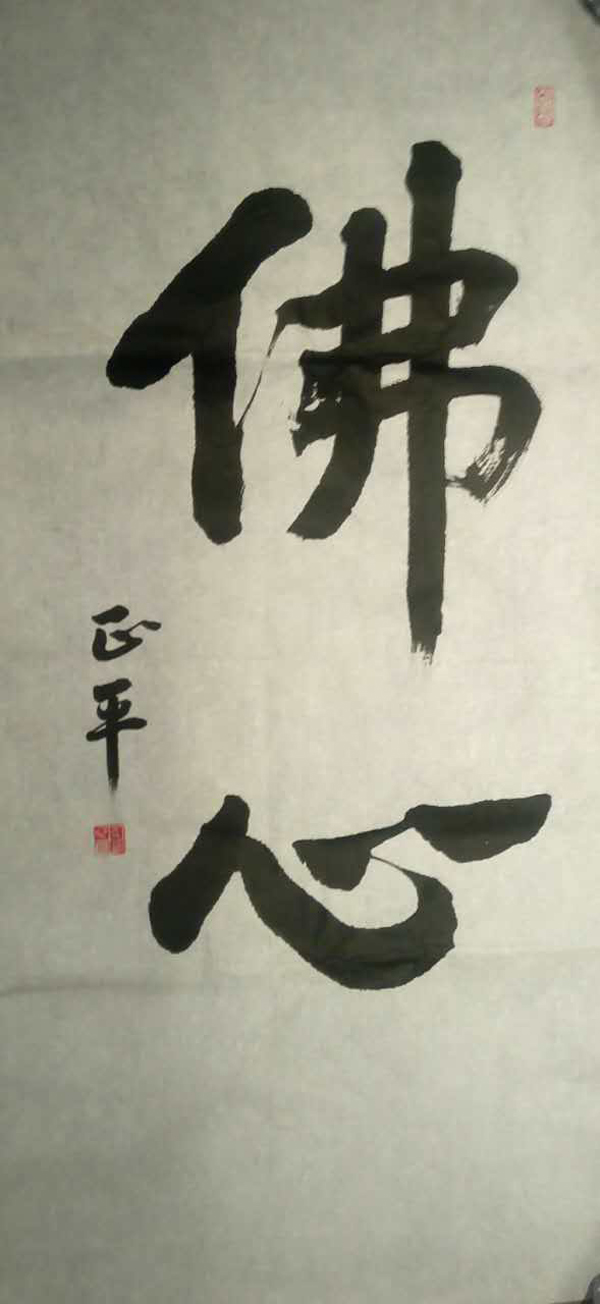 佛心
正平